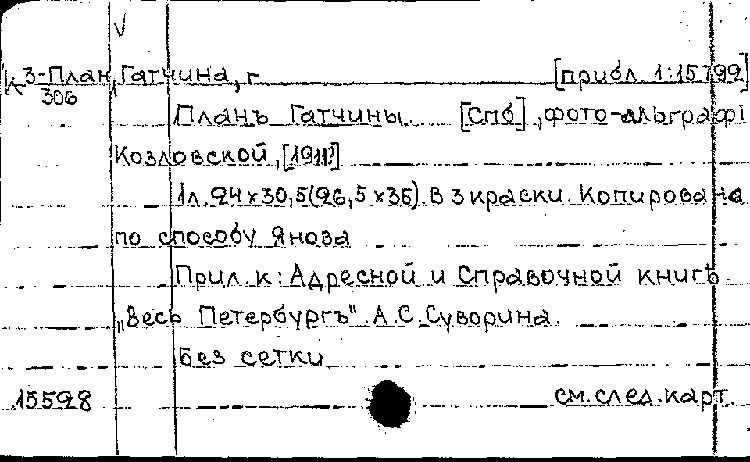 V
К 3-План Гатчина, г. [прибл. 1:15799]
306
Планъ Гатчины. [Спб], фото-
Козловской, [1911?]
1л. 24х30,5(26,5х35). В 3 краски. Копирована
по способу Яноза
Прил. к: Адресной и Справочной книгѣ
„Весь Петербургъ" А.С. Суворина.
Без сетки
15598 см. след. карт.